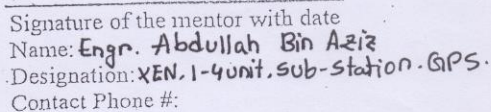 Signature of the mentor with date
Name: Engr. Abdullah Bin Aziz
Designation: XEN, 1-4unit, Sub-Station. GPS.
Contact Phone #: